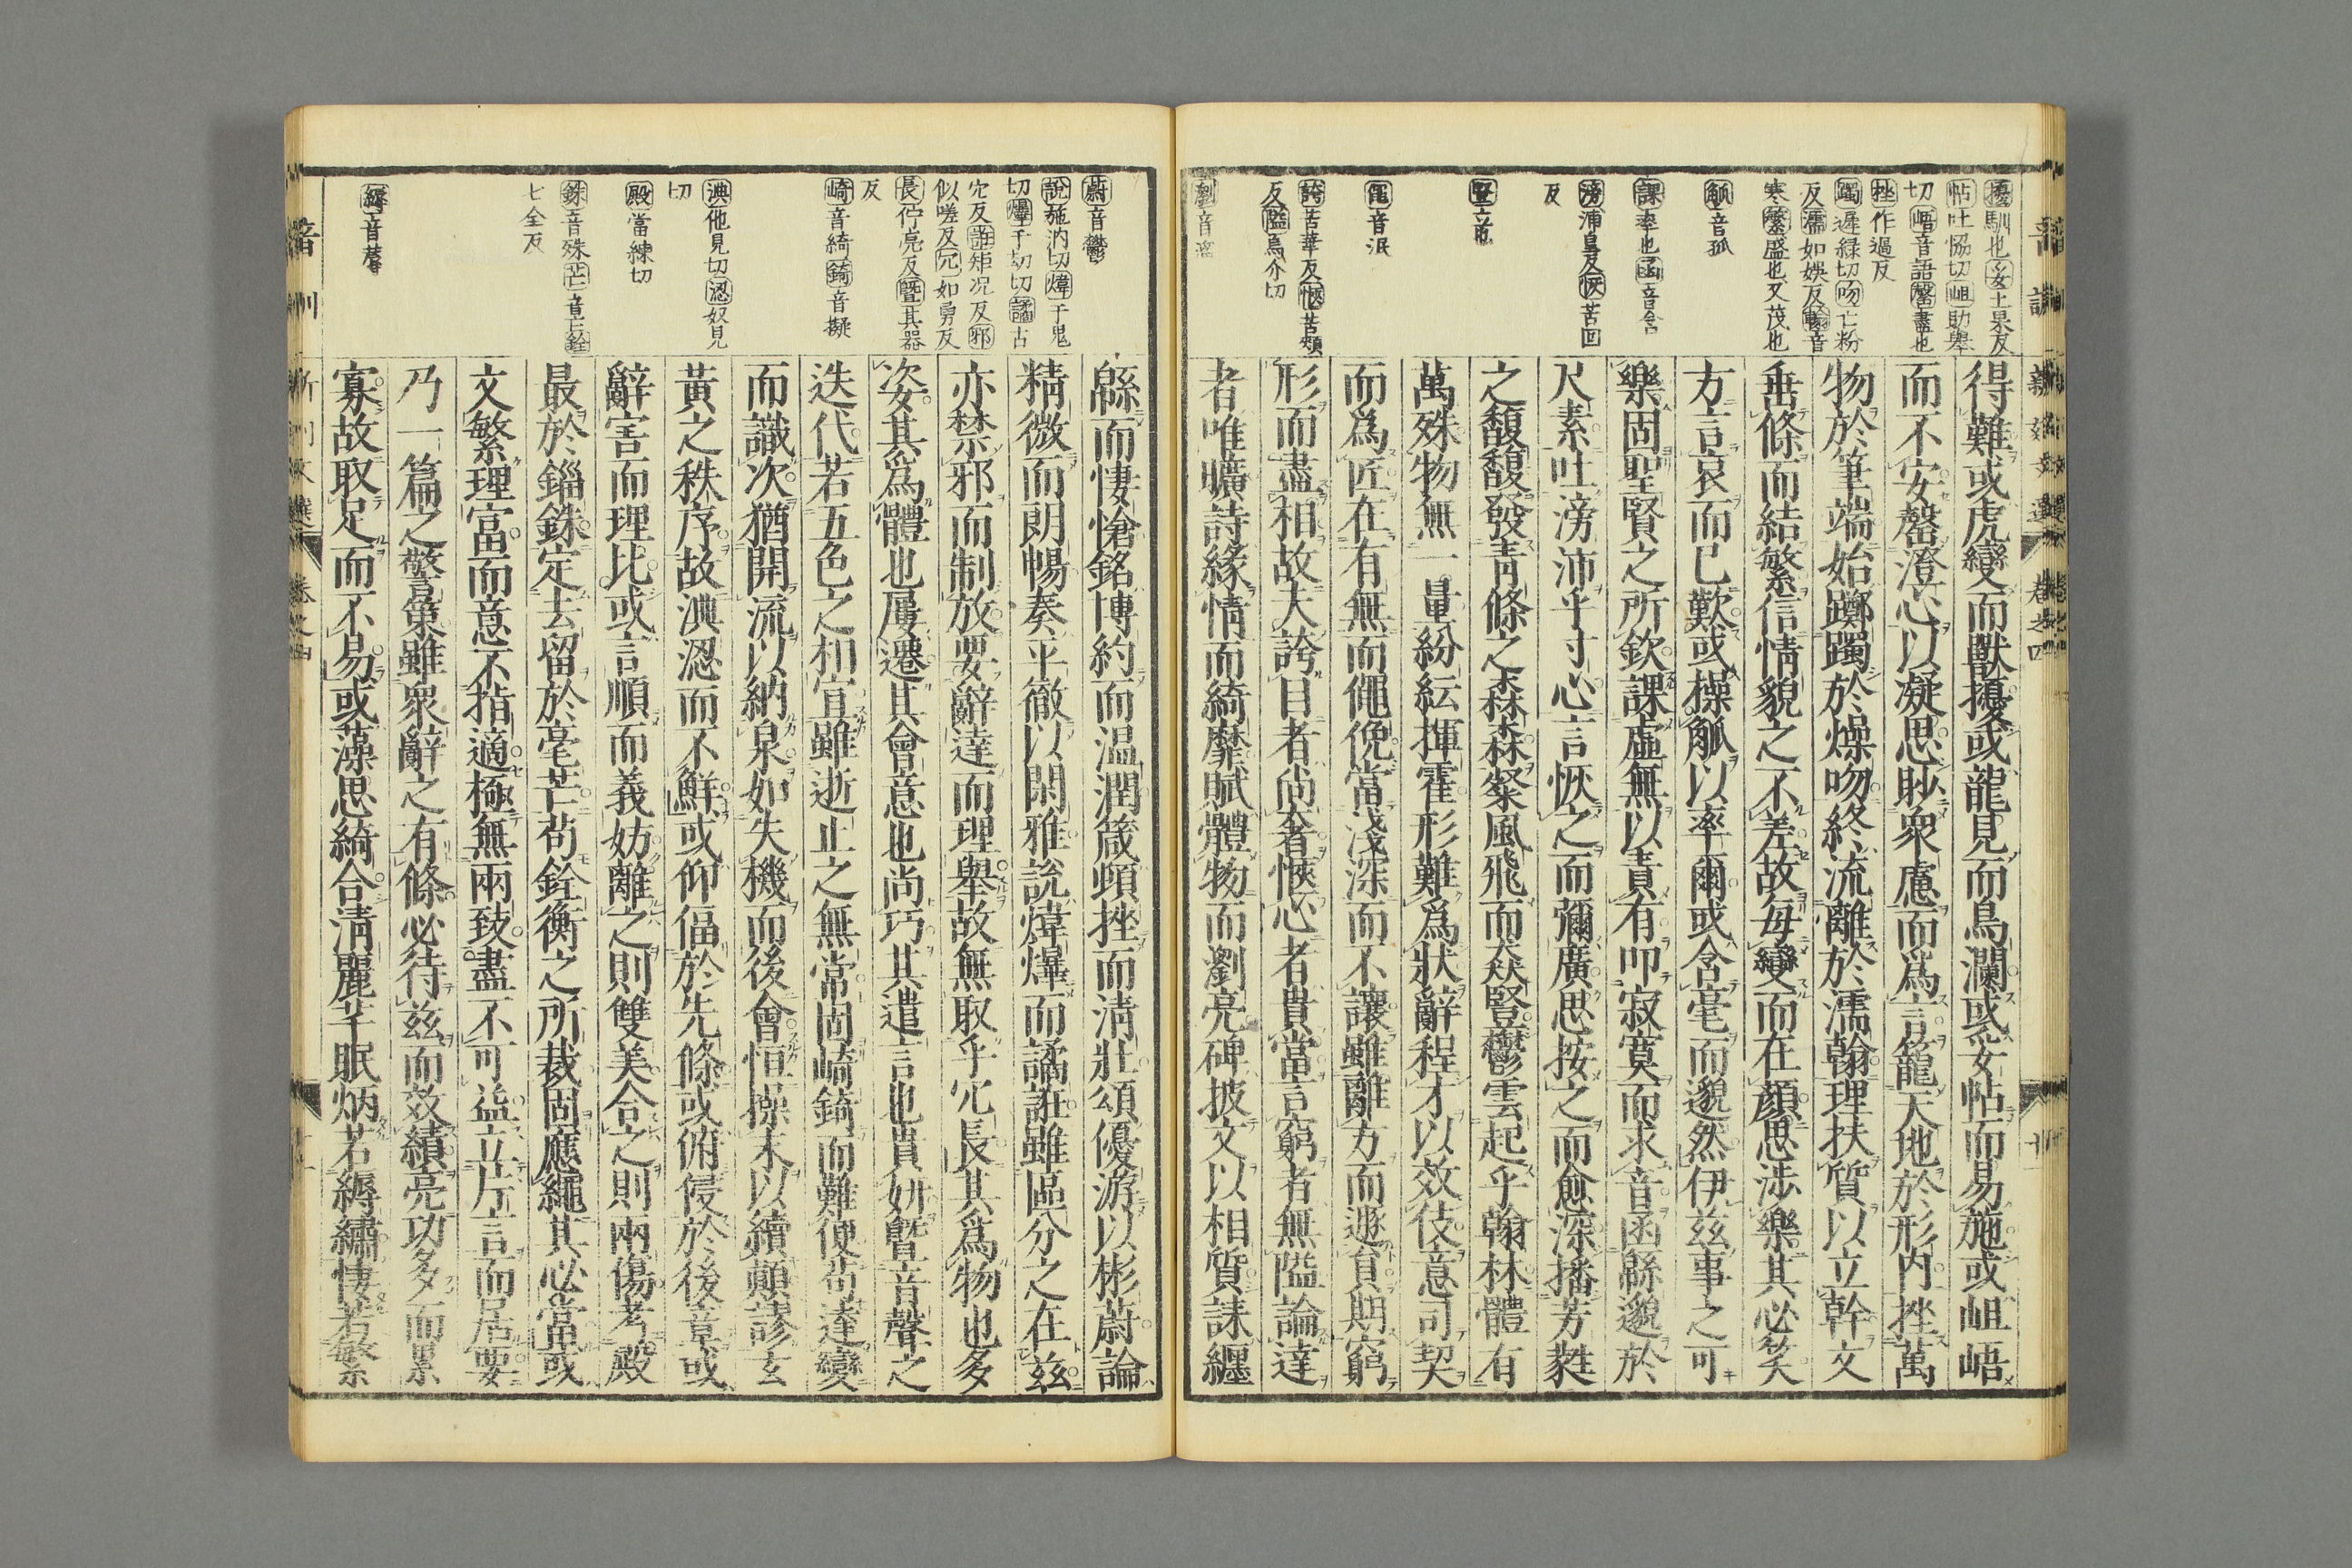 音訓
新刻文選
卷之四
擾馴也妥土果反
帖吐協切岨助舉
切峿音語罄盡也
挫作過反
躅遲緑切吻亡粉
反濡如娛反翰音
寒繁盛也又茂也
觚音孤
課率也函音含
滂浦皇反恢苦回
反
僶音泯
誇苦華反愜苦頰
反隘烏介切
劉音流
得難或虎變而獸擾或龍見而鳥瀾或妥帖而易施或岨峿
而不安罄澄心以凝思眇衆慮而爲言籠天地於形內挫萬
物於筆端始躑躅於燥吻終流離於濡翰理扶質以立幹文
垂條而結繁信情貌之不差故每變而在顔思涉樂其必笑
方言哀而已歎或操觚以率爾或含毫而邈然伊茲事之可
樂固聖賢之所欽課虛無以責有叩寂寞而求音函緜邈於
尺素吐滂沛乎寸心言恢之而彌廣思按之而愈深播芳蕤
之馥馥發青條之森森粲風飛而猋豎鬱雲起乎翰林體有
萬殊物無一量紛紜揮霍形難爲狀辭程才以效伎意司契
而爲匠在有無而僶俛當淺深而不讓雖離方而遯員期窮
形而盡相故夫誇目者尚奢愜心者貴當言窮者無隘論達
者唯曠詩緣情而綺靡賦體物而瀏亮碑披文以相質誄纏
蔚音鬱
說施汭切煒于鬼
切燁于劫切譎古
穴反誑矩况反邪
似嗟反冗如勇反
長佇亮反曁其器
反
崎音綺錡音擬
淟他見切涊奴見
切
殿當練切
銖音殊芒音亡銓
七全反
縟音蓐
緜而悽愴銘博約而温潤箴頓挫而清壯頌優游以彬蔚論
精微而朗暢奏平徹以閑雅說煒燁而譎誑雖區分之在茲
亦禁邪而制放要辭達而理舉故無取乎冗長其爲物也多
姿其爲體也屢遷其會意也尚巧其遣言也貴妍曁音聲之
迭代若五色之相宣雖逝止之無常固崎錡而難便苟達變
而識次猶開流以納泉如失機而後會恒操末以續顛謬玄
黃之秩序故淟涊而不鮮或仰偪於先條或俯侵於後章或
辭害而理比或言順而義妨離之則雙美合之則兩傷考殿
最於錙銖定去留於毫芒苟銓衡之所裁固應繩其必當或
文繁理富而意不指適極無兩致盡不可益立片言而居要
乃一篇之警策雖衆辭之有條必待茲而效績亮功多而累
寡故取足而不易或藻思綺合清麗芊眠炳若縟繡悽若繁